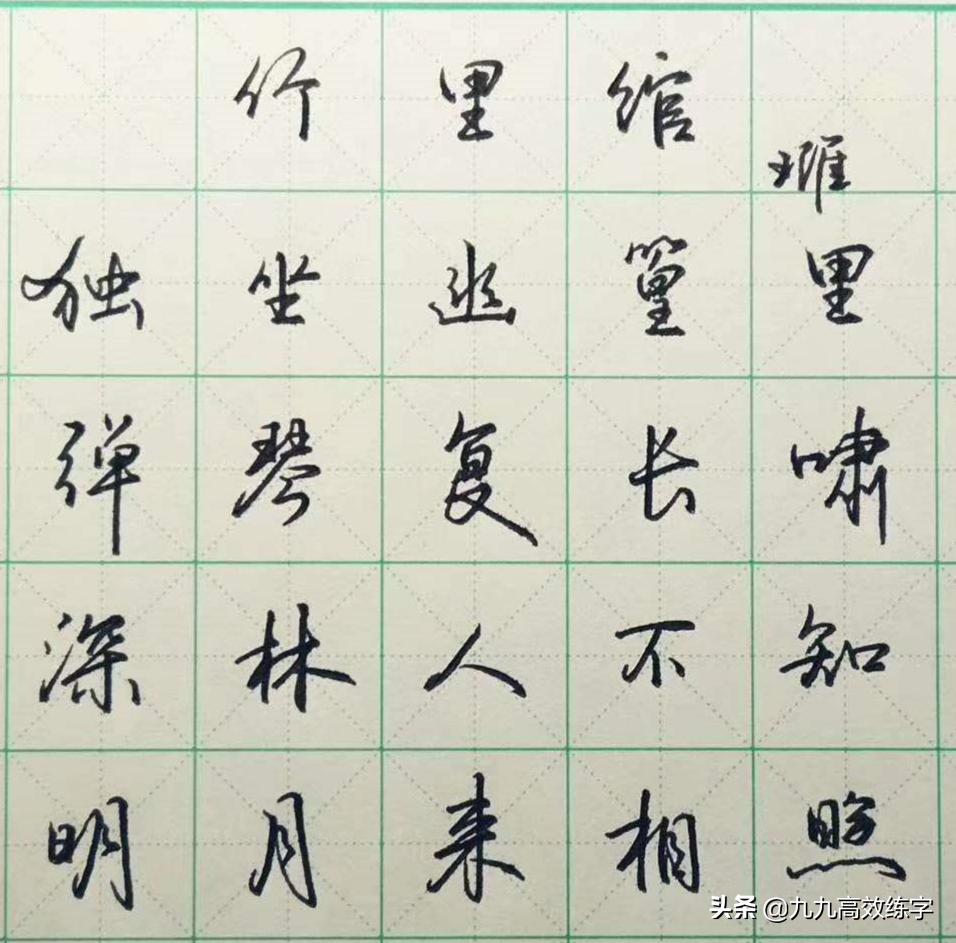 竹里馆
王维
独坐幽篁里
弹琴复长啸
深林人不知
明月来相照
头条 @九九高效练字